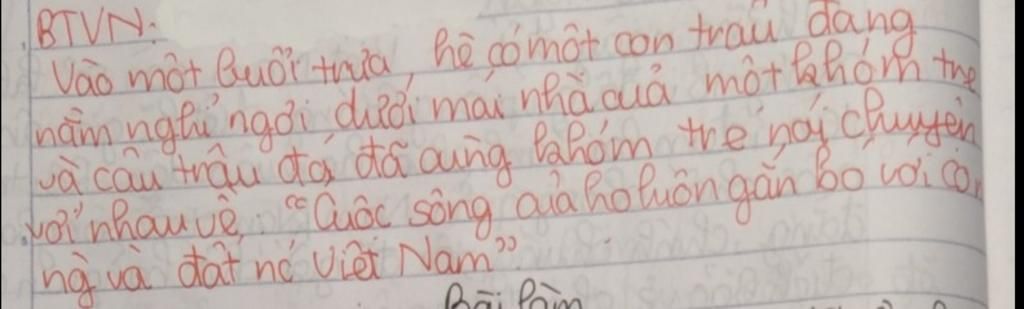 BTVN:
Vào một buổi trưa, hè có một con trâu đang
nằm nghỉ ngơi dưới mái nhà của một khóm tre
và câu trâu đó đã cùng khóm tre nói chuyện
với nhau về, "Cuộc sông của họ luôn gắn bó với co
ng và đất nc Việt Nam"
Bài làm